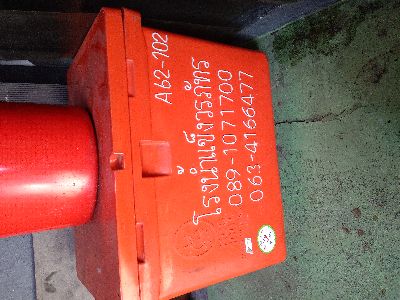 A62-102
โรงน้ำแข็งวรภัทร
089-1071700
063-4166477